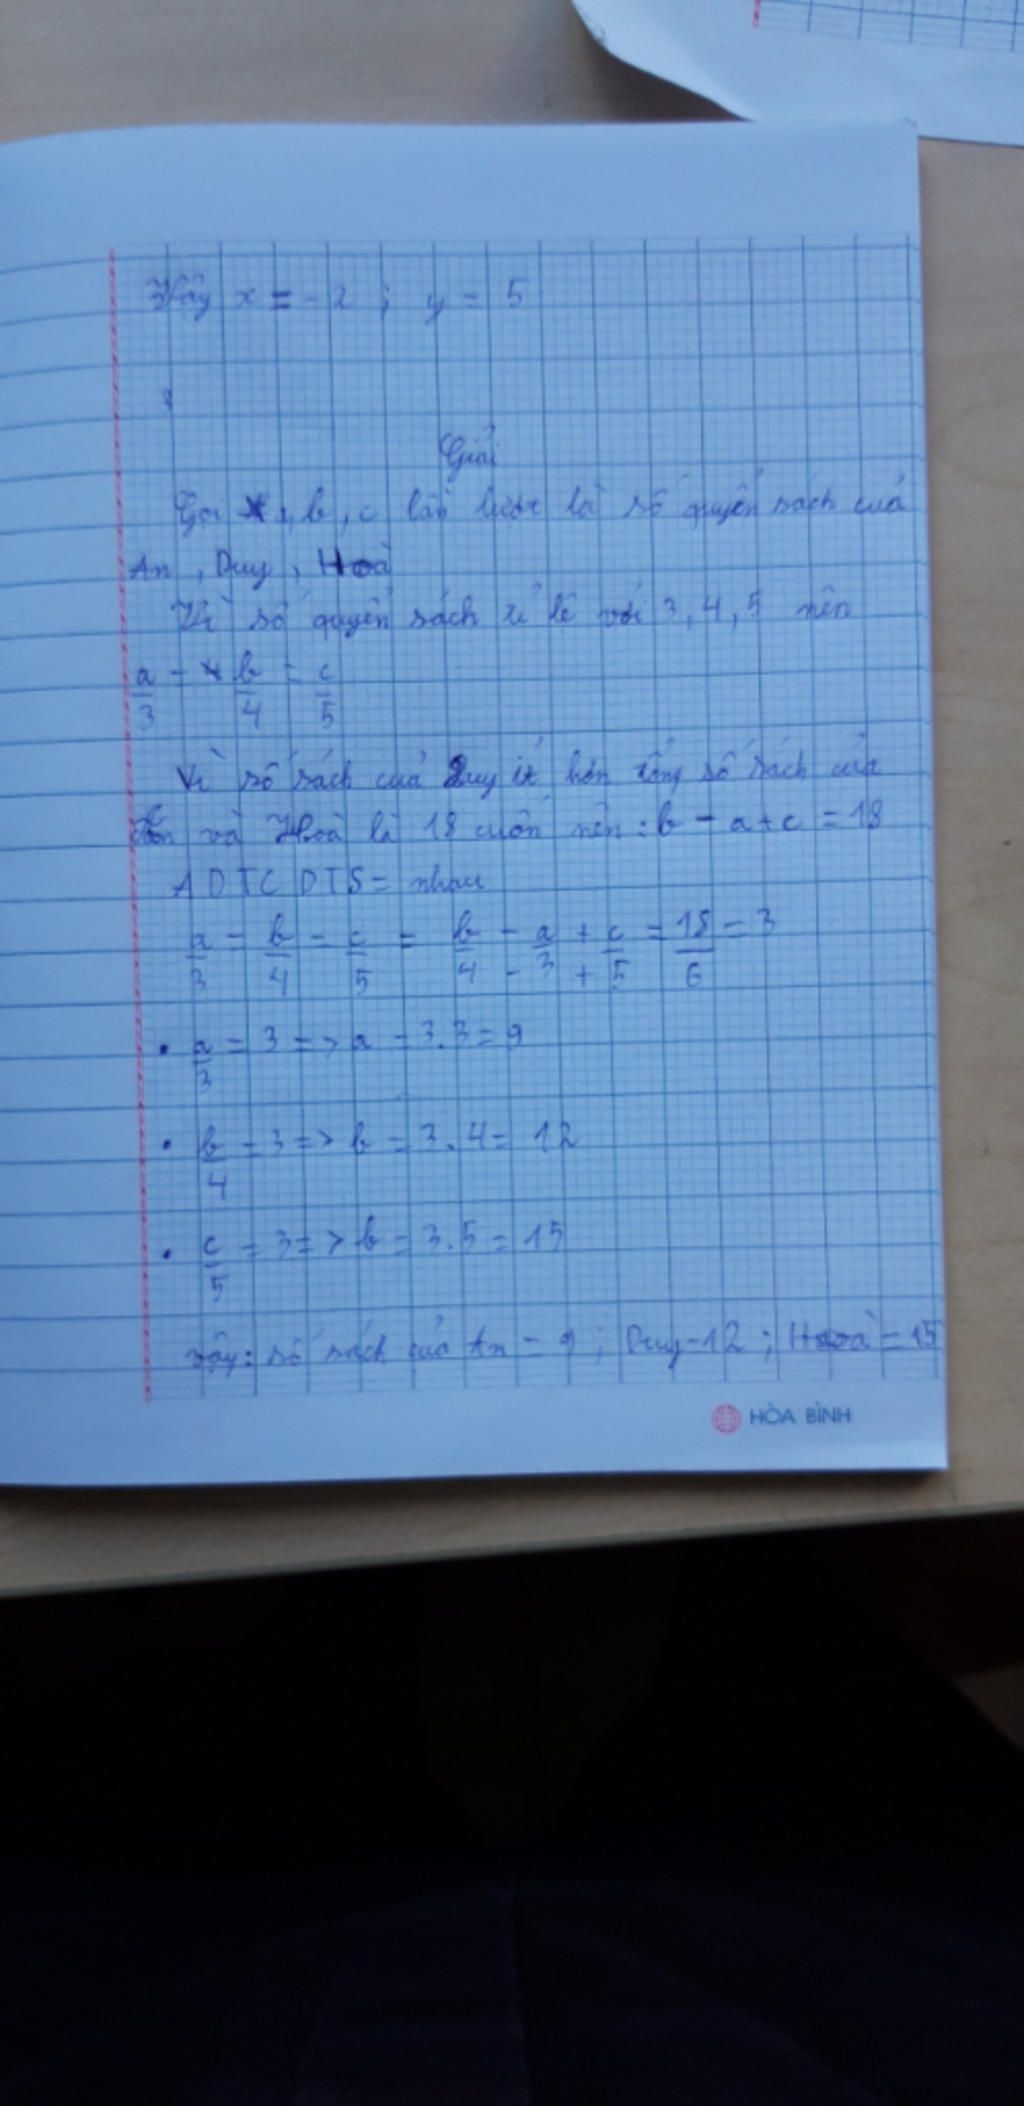 Vậy x = -2 ; y = 5
Giải
Gọi a, b, c lần lượt là số quyển sách của
An, Duy, Hoà
Vì số quyển sách tỉ lệ với 3, 4, 5 nên
a/3 = b/4 = c/5
Vì số sách của Duy ít hơn tổng số sách của
An và Hoà là 18 cuốn nên : b - a + c = 18
ADTCDTS = nhau
a/3 = b/4 = c/5 = b/4 - a/3 + c/5 = 18/6 = 3
• a/3 = 3 => a = 3.3 = 9
• b/4 = 3 => b = 3.4 = 12
• c/5 = 3 => b = 3.5 = 15
Vậy: số sách của An = 9 ; Duy = 12 ; Hoà = 15
HÒA BÌNH